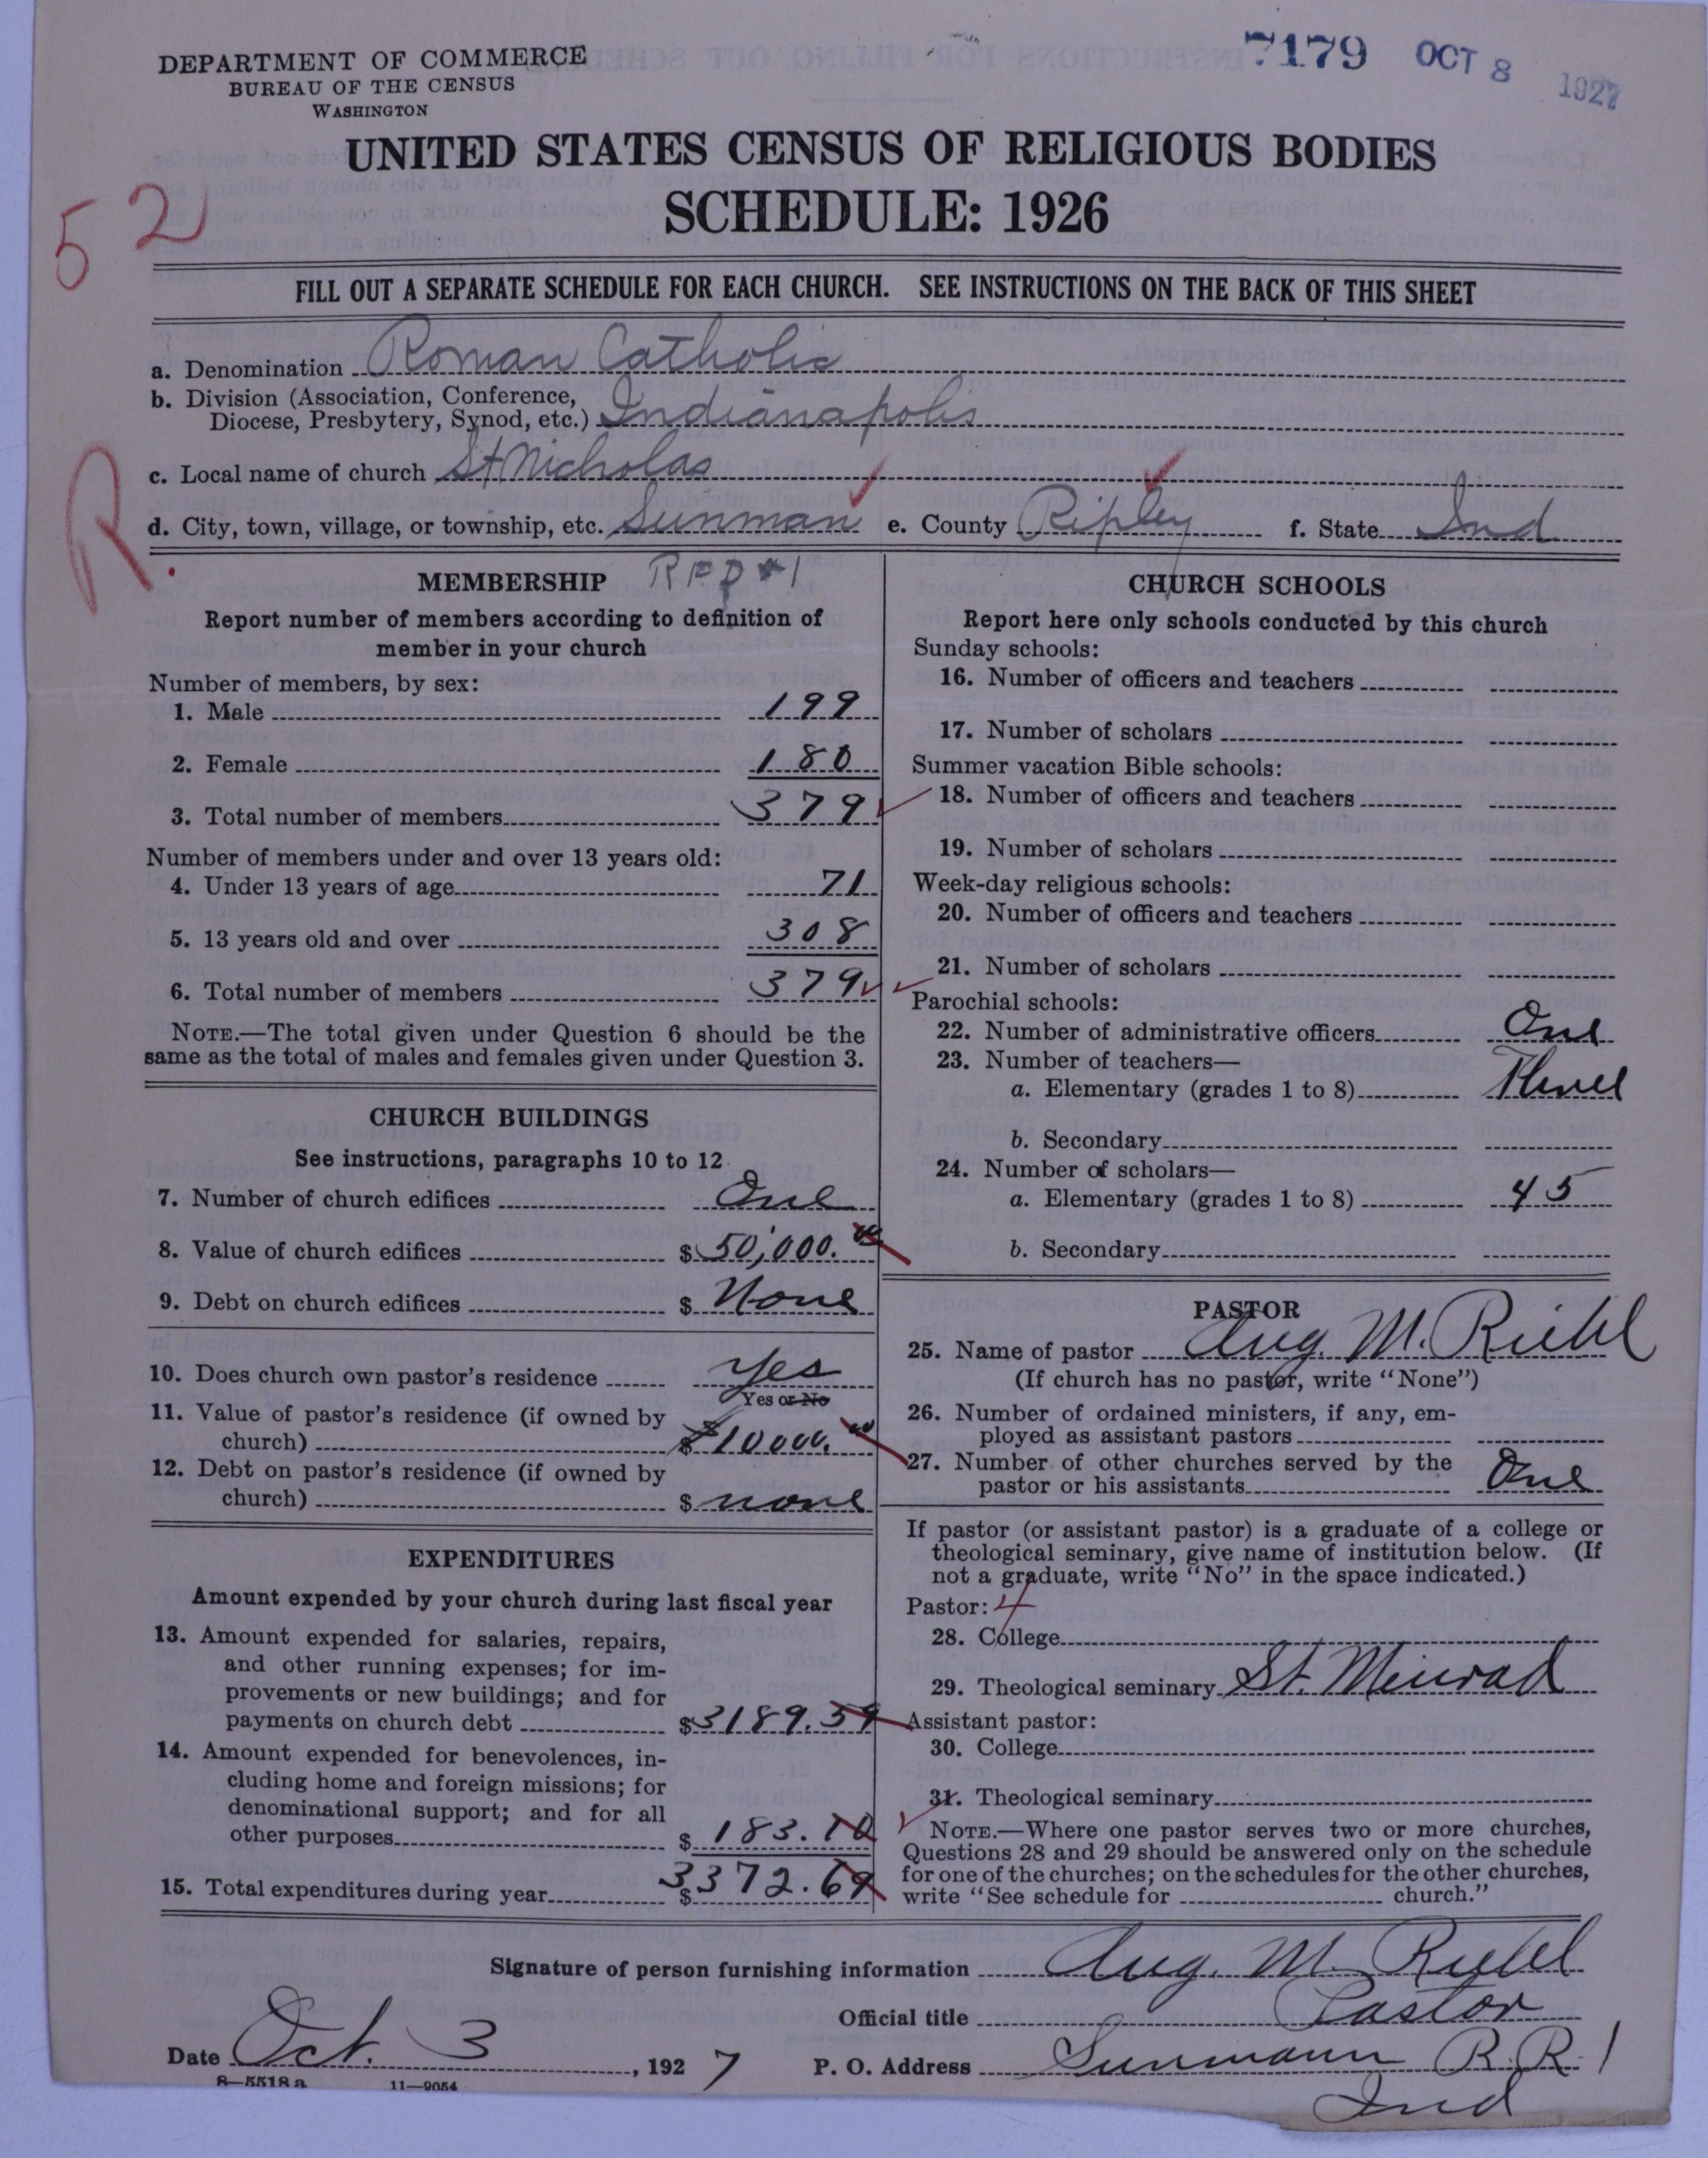 7179 OCT 8 1927
DEPARTMENT OF COMMERCE
BUREAU OF THE CENSUS
WASHINGTON
UNITED STATES CENSUS OF RELIGIOUS BODIES
SCHEDULE: 1926
52
FILL OUT A SEPARATE SCHEDULE FOR EACH CHURCH. SEE INSTRUCTIONS ON THE BACK OF THIS SHEET
a. Denomination Roman Catholic
b. Division (Association, Conference,
Diocese, Presbytery, Synod, etc.) Indianapolis
c. Local name of church St Nicholas
R.
d. City, town, village, or township, etc. Sunman e. County Ripley f. State Ind
MEMBERSHIP RFD #1
Report number of members according to definition of
member in your church
Number of members, by sex:
1. Male 199
2. Female 180
3. Total number of members 379
Number of members under and over 13 years old:
4. Under 13 years of age 71
5. 13 years old and over 308
6. Total number of members 379
NOTE.—The total given under Question 6 should be the
same as the total of males and females given under Question 3.
CHURCH BUILDINGS
See instructions, paragraphs 10 to 12
7. Number of church edifices One
8. Value of church edifices $ 50,000.00
9. Debt on church edifices $ None
10. Does church own pastor's residence Yes
Yes or No
11. Value of pastor's residence (if owned by
church) $ 10000.00
12. Debt on pastor's residence (if owned by
church) $ none
EXPENDITURES
Amount expended by your church during last fiscal year
13. Amount expended for salaries, repairs,
and other running expenses; for im-
provements or new buildings; and for
payments on church debt $ 3189.59
14. Amount expended for benevolences, in-
cluding home and foreign missions; for
denominational support; and for all
other purposes $ 183.10
15. Total expenditures during year $ 3372.69
CHURCH SCHOOLS
Report here only schools conducted by this church
Sunday schools:
16. Number of officers and teachers
17. Number of scholars
Summer vacation Bible schools:
18. Number of officers and teachers
19. Number of scholars
Week-day religious schools:
20. Number of officers and teachers
21. Number of scholars
Parochial schools:
22. Number of administrative officers One
23. Number of teachers—
a. Elementary (grades 1 to 8) Three
b. Secondary
24. Number of scholars—
a. Elementary (grades 1 to 8) 45
b. Secondary
PASTOR
25. Name of pastor Aug. M. Riehl
(If church has no pastor, write "None")
26. Number of ordained ministers, if any, em-
ployed as assistant pastors
27. Number of other churches served by the
pastor or his assistants One
If pastor (or assistant pastor) is a graduate of a college or
theological seminary, give name of institution below. (If
not a graduate, write "No" in the space indicated.)
Pastor: 4
28. College
29. Theological seminary St. Meinrad
Assistant pastor:
30. College
31. Theological seminary
NOTE.—Where one pastor serves two or more churches,
Questions 28 and 29 should be answered only on the schedule
for one of the churches; on the schedules for the other churches,
write "See schedule for church."
Signature of person furnishing information Aug. M. Riehl
Official title Pastor
Date Oct. 3, 1927 P. O. Address Sunmann R.R. 1
Ind
8—5518 a 11—9054